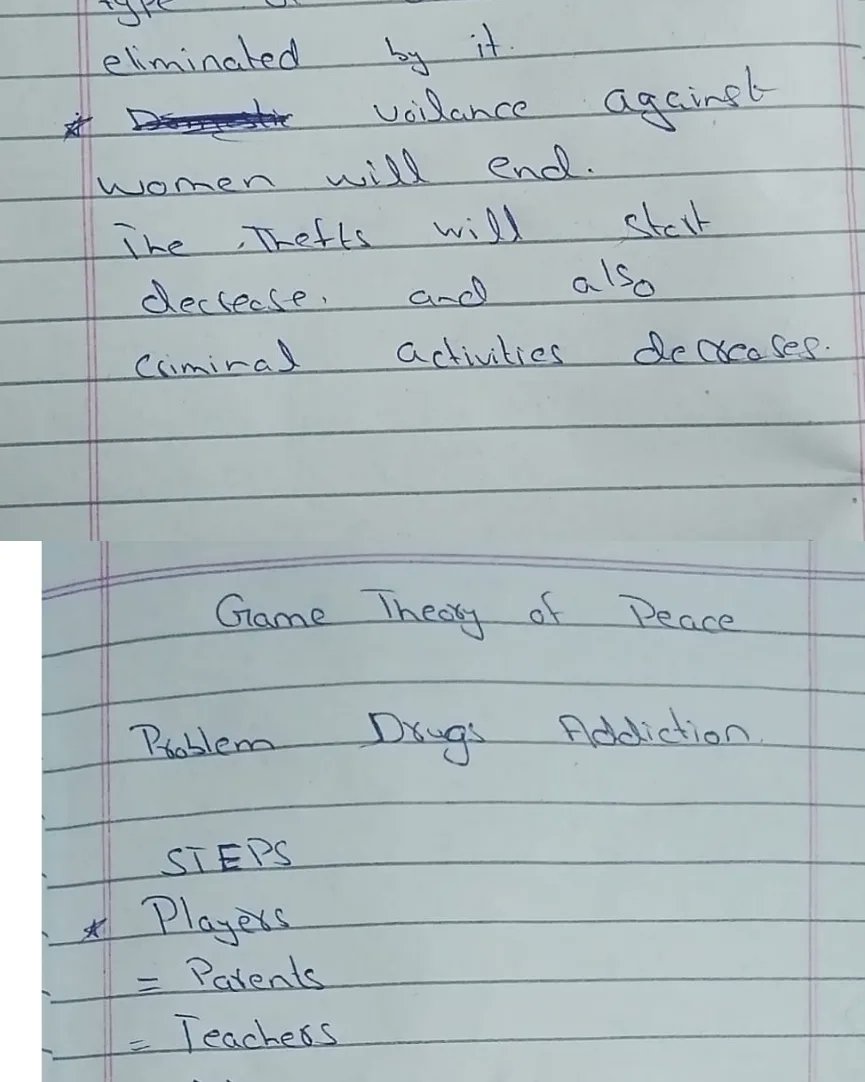 eliminated by it.
* voilance against
women will end.
The Thefts will start
decrease. and also
criminal activities decreases.
Game Theory of Peace
Problem Drugs Addiction.
STEPS
* Players
= Parents
= Teachers